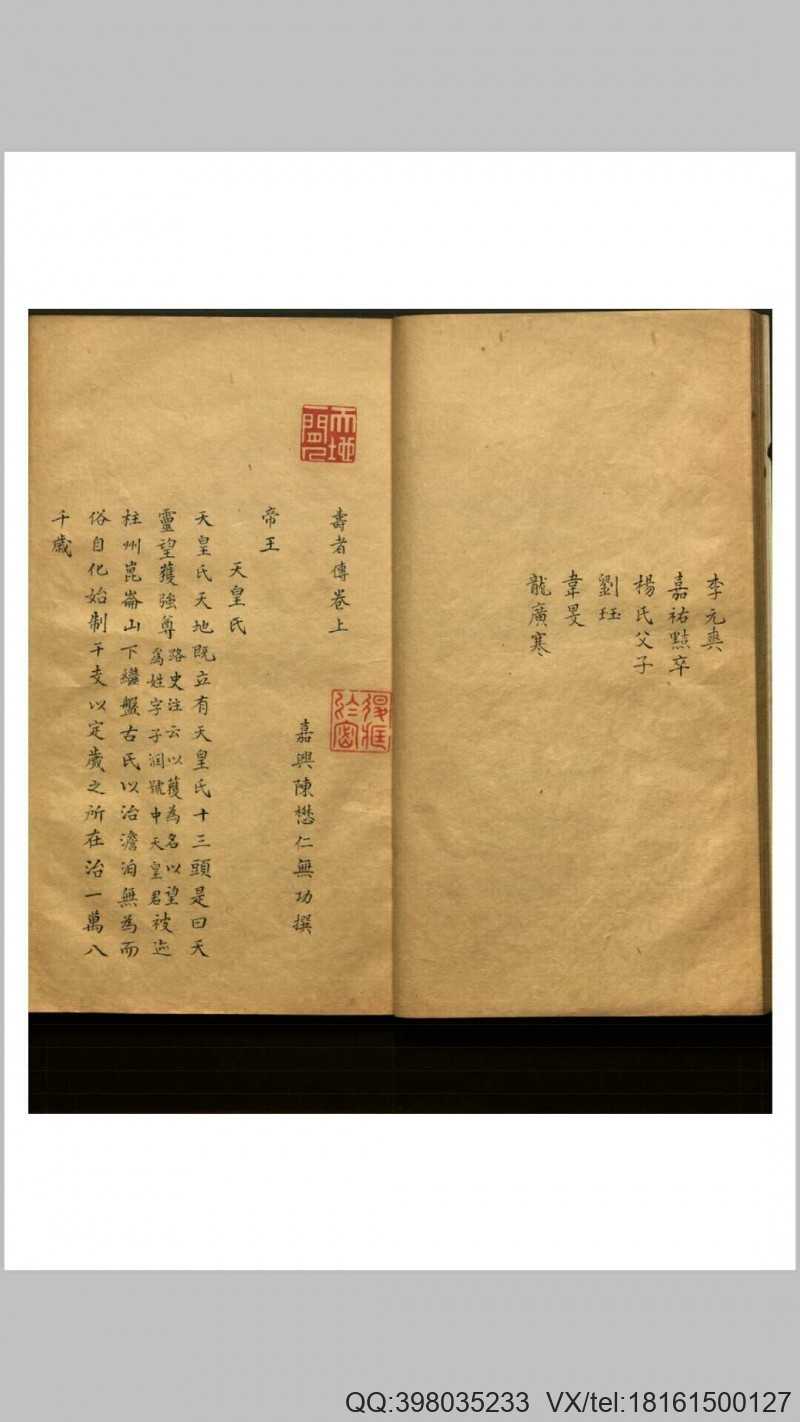 李元爽
嘉祐黥卒
楊氏父子
劉珏
韋旻
龍廣寒
壽者傳卷上
嘉興陳懋仁無功撰
帝王
天皇氏
天皇氏天地既立有天皇氏十三頭是曰天
靈望獲強尊路史注云以獲為名以望為姓字子潤號中天皇君被迹
柱州崑崙山下繼盤古氏以治澹泊無為而
俗自化始制干支以定歲之所在治一萬八
千歲
QQ:398035233 VX/tel:18161500127